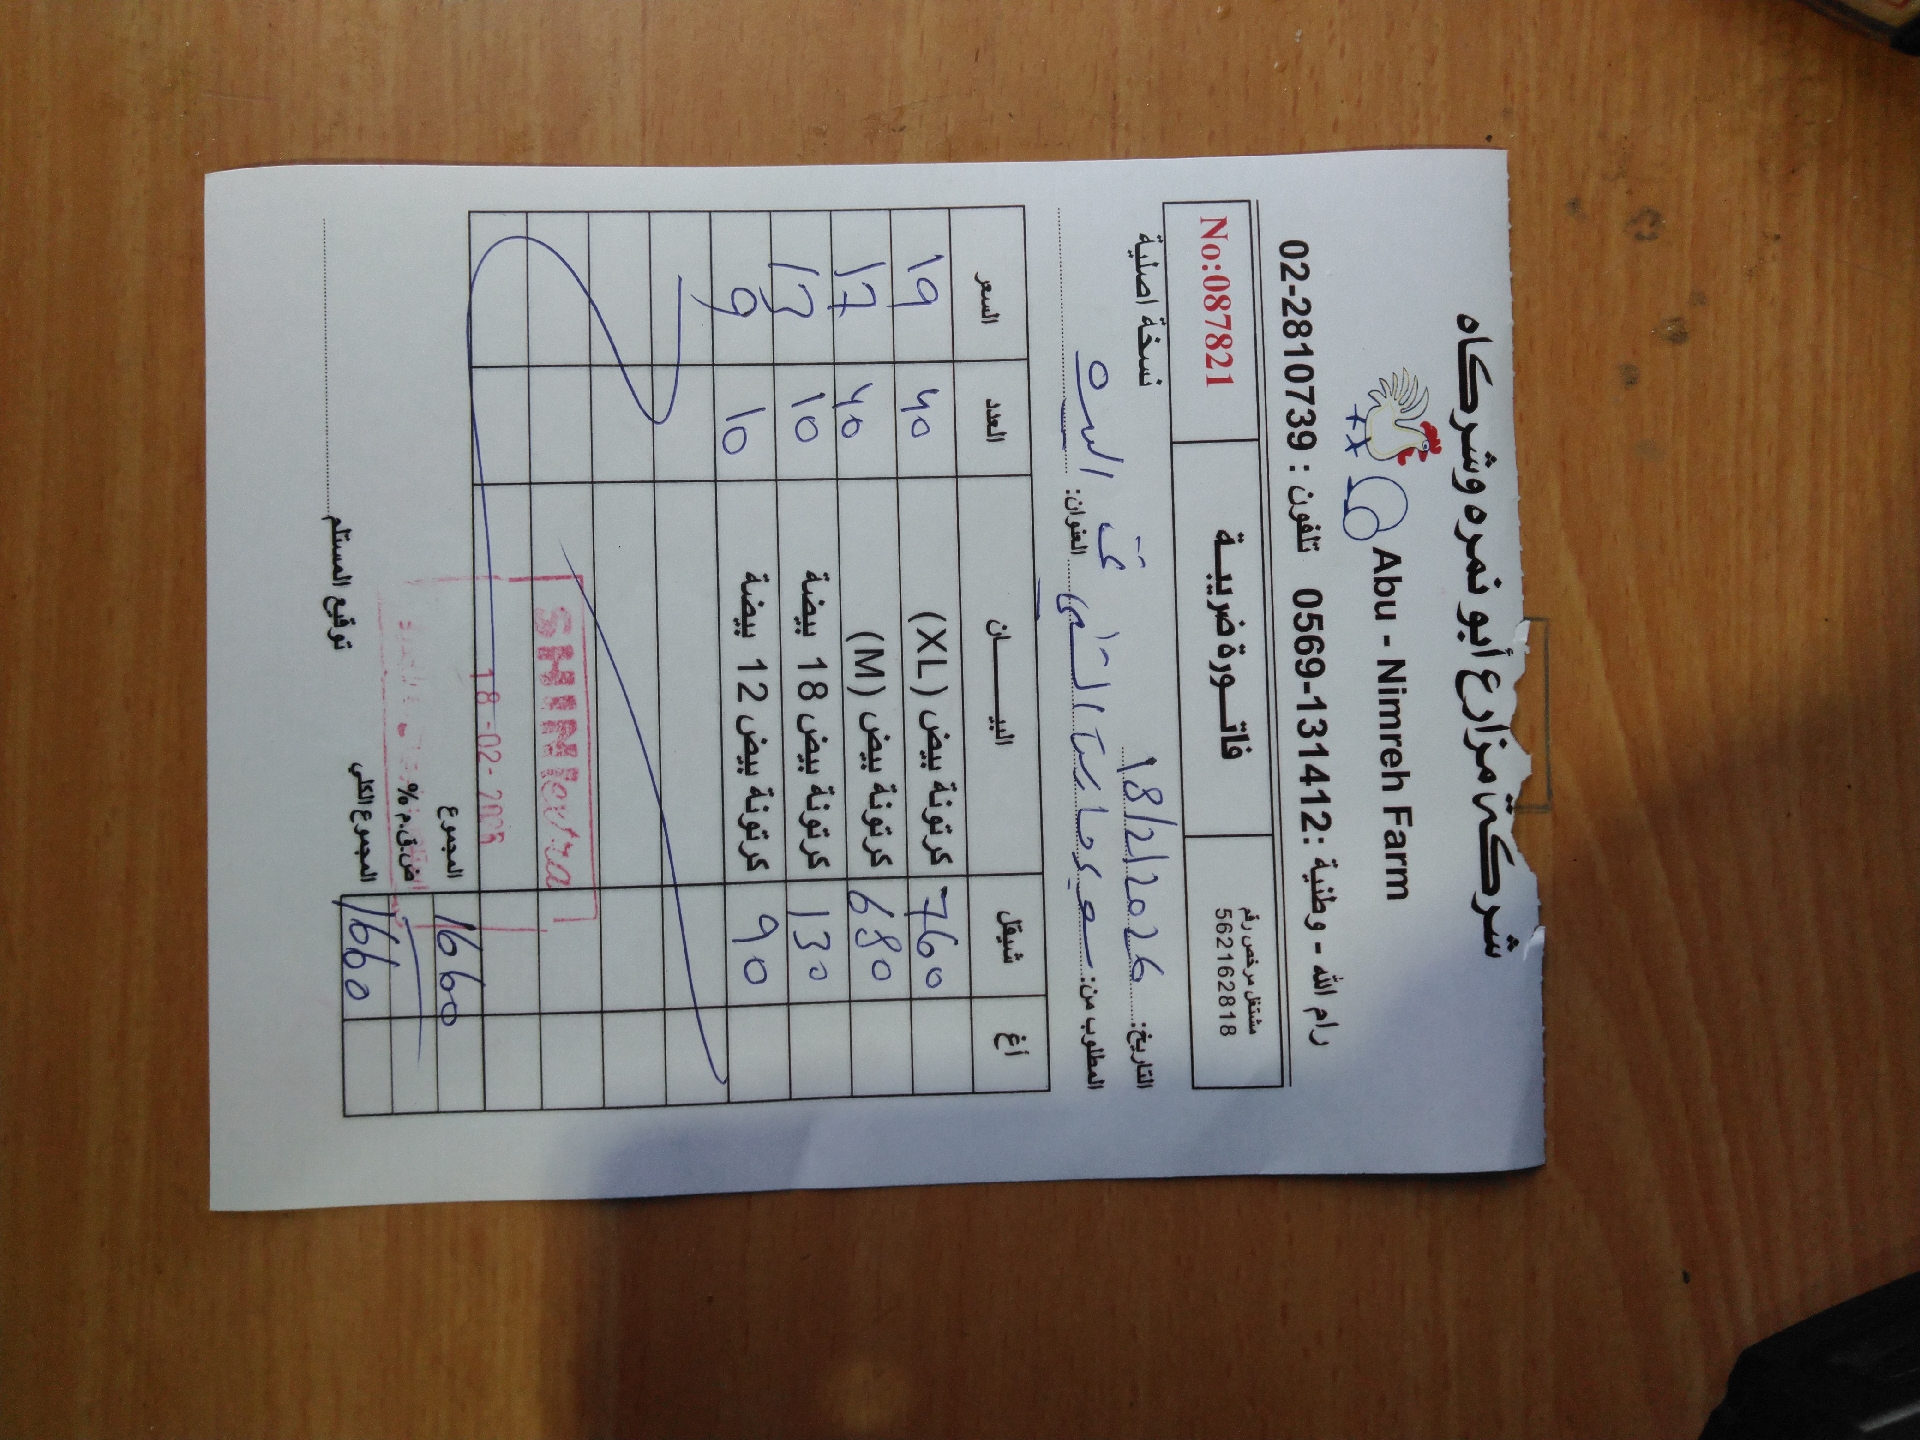 شركة مزارع أبو نمره وشركاه
Abu - Nimreh Farm
رام الله - وطنية : 0569-131412 تلفون : 02-2810739
مشتغل مرخص رقم
562162818
فاتورة ضريبية
No:087821
التاريخ: 18/2/2026
نسخة اصلية
المطلوب من:
العنوان:
أغ شيقل البيـــــان العدد السعر
760 كرتونة بيض (XL) 40 19
680 كرتونة بيض (M) 40 17
130 كرتونة بيض 18 بيضة 10 13
90 كرتونة بيض 12 بيضة 10 9
SHINI extra
18-02-
1660 المجموع
ض.ق.م %
1660 المجموع الكلي
توقيع المستلم